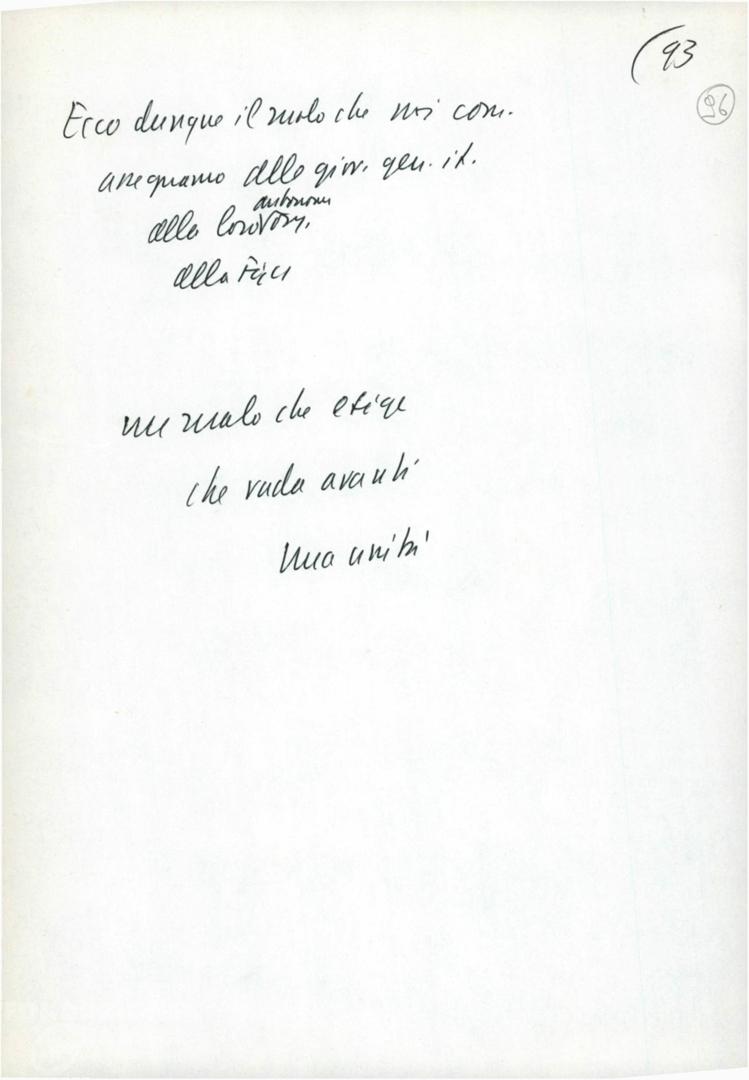 (93
96
Ecco dunque il ruolo che noi com.
assegnamo alle giov. gen. it.
autonome
alle loro org.
alla Fgci
un ruolo che esige
che vada avanti
una unità